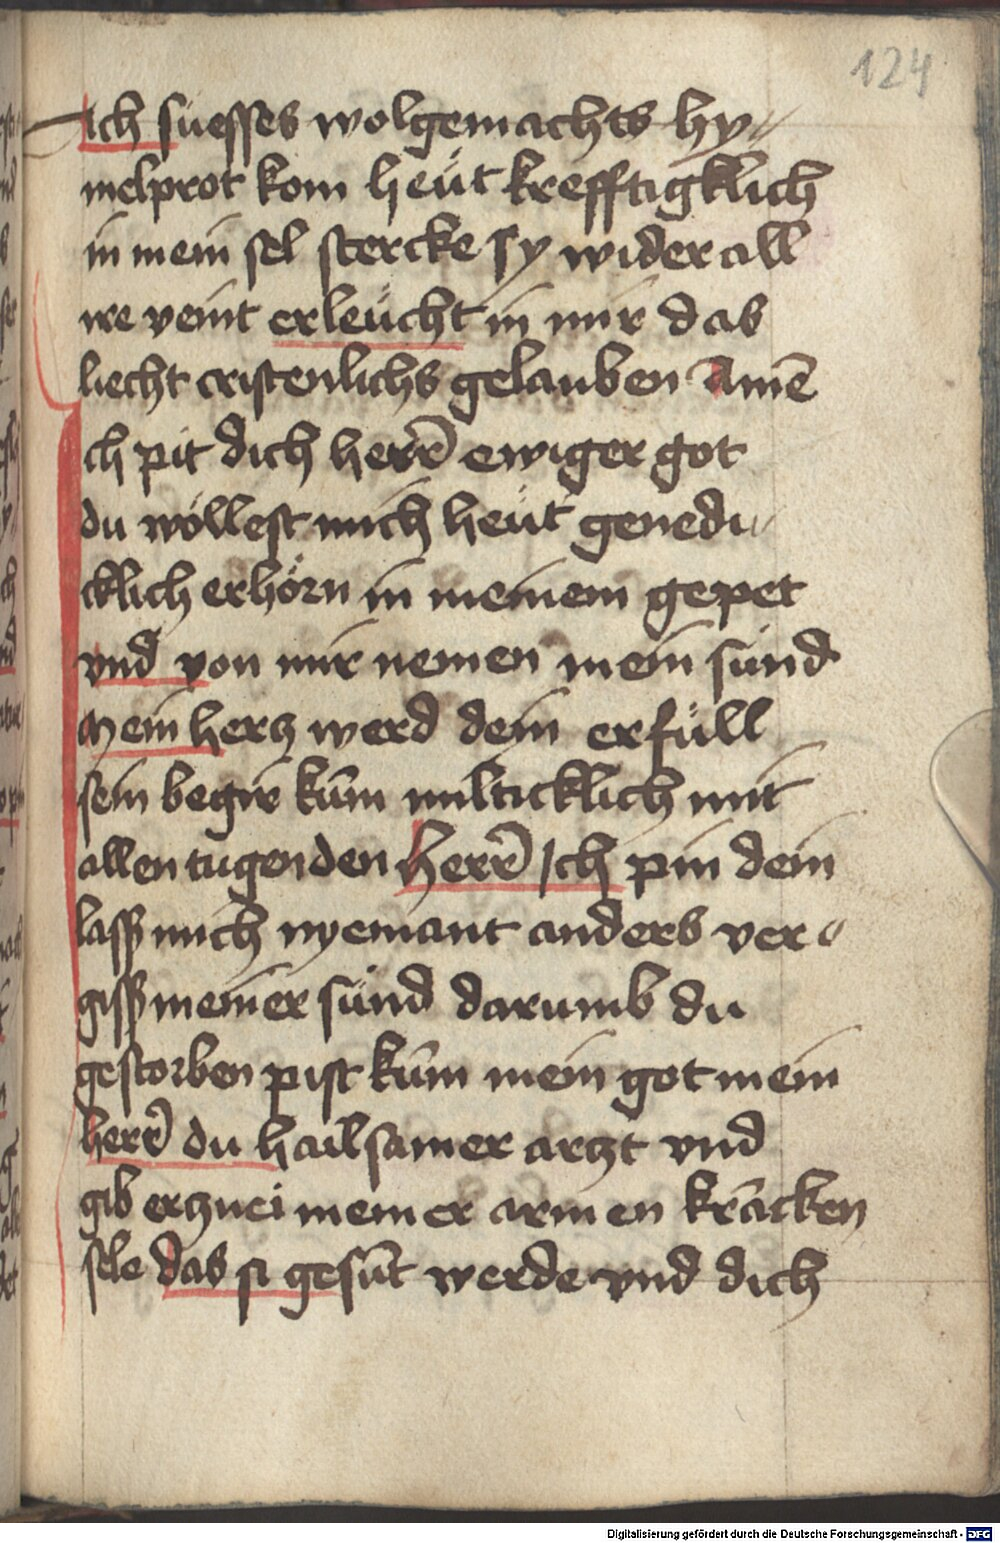 124
Ach süesses wolgemachts hy〃
melprot kom heüt krefftigklich
in mein sel stercke sy wider all
ire veint erleücht in mir das
liecht cristenlichs gelauben Amē
Ich pit dich herr̄ ewiger got
du wöllest mich heüt genedi〃
cklich erhörn in meinem gepet
vnd von mir nemen mein sünd
Mein hercz werd dein erfüll
sein begir kūm milticklich mit
allen tugenden herr̄ Ich pin dein
lass mich nyemant anders ver〃
giss meiner sünd darumb du
gestorben pist kūm mein got mein
herr̄ du hailsamer arczt vnd
gib ercznei meiner armen krācken
sele das si gesūt werde vnd dich
Digitalisierung gefördert durch die Deutsche Forschungsgemeinschaft - DFG